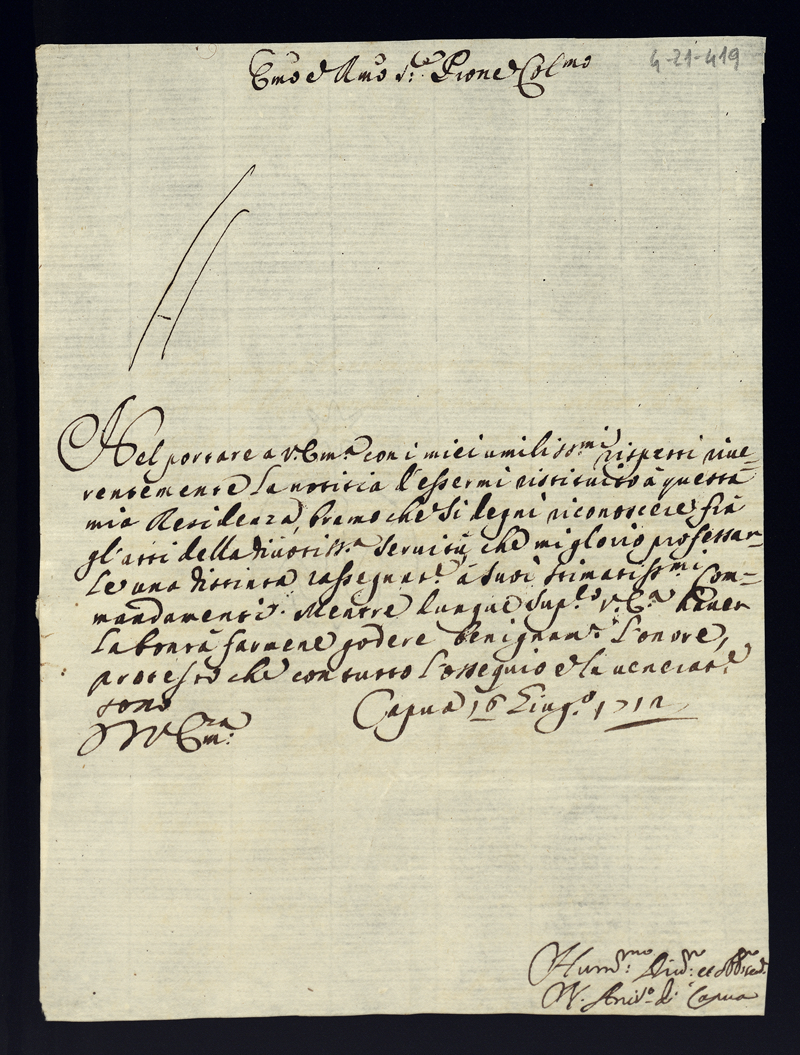 Emo e Rmo Sr. Prone Colmo
4-21-419
Nel portare a V. Emza con i miei umilissmi rispetti rive-
rentemente la notitia d'essermi restituito à questa
mia Residenza, bramo che si degni riconoscere frà
gl'atti della divotissa servitù, che mi glorio professar-
Le una distinta rassegnate à suoi stimatissmi Com-
mandamenti. Mentre dunque suplco V. Eza haver
la bontà farmene godere benignamte l'onore,
protesto che con tutto l'ossequio e la venerate
sono
Di V. Emza
Capua 16 Giugo 1712
Hummo Divmo et
N. Arivo di Capua